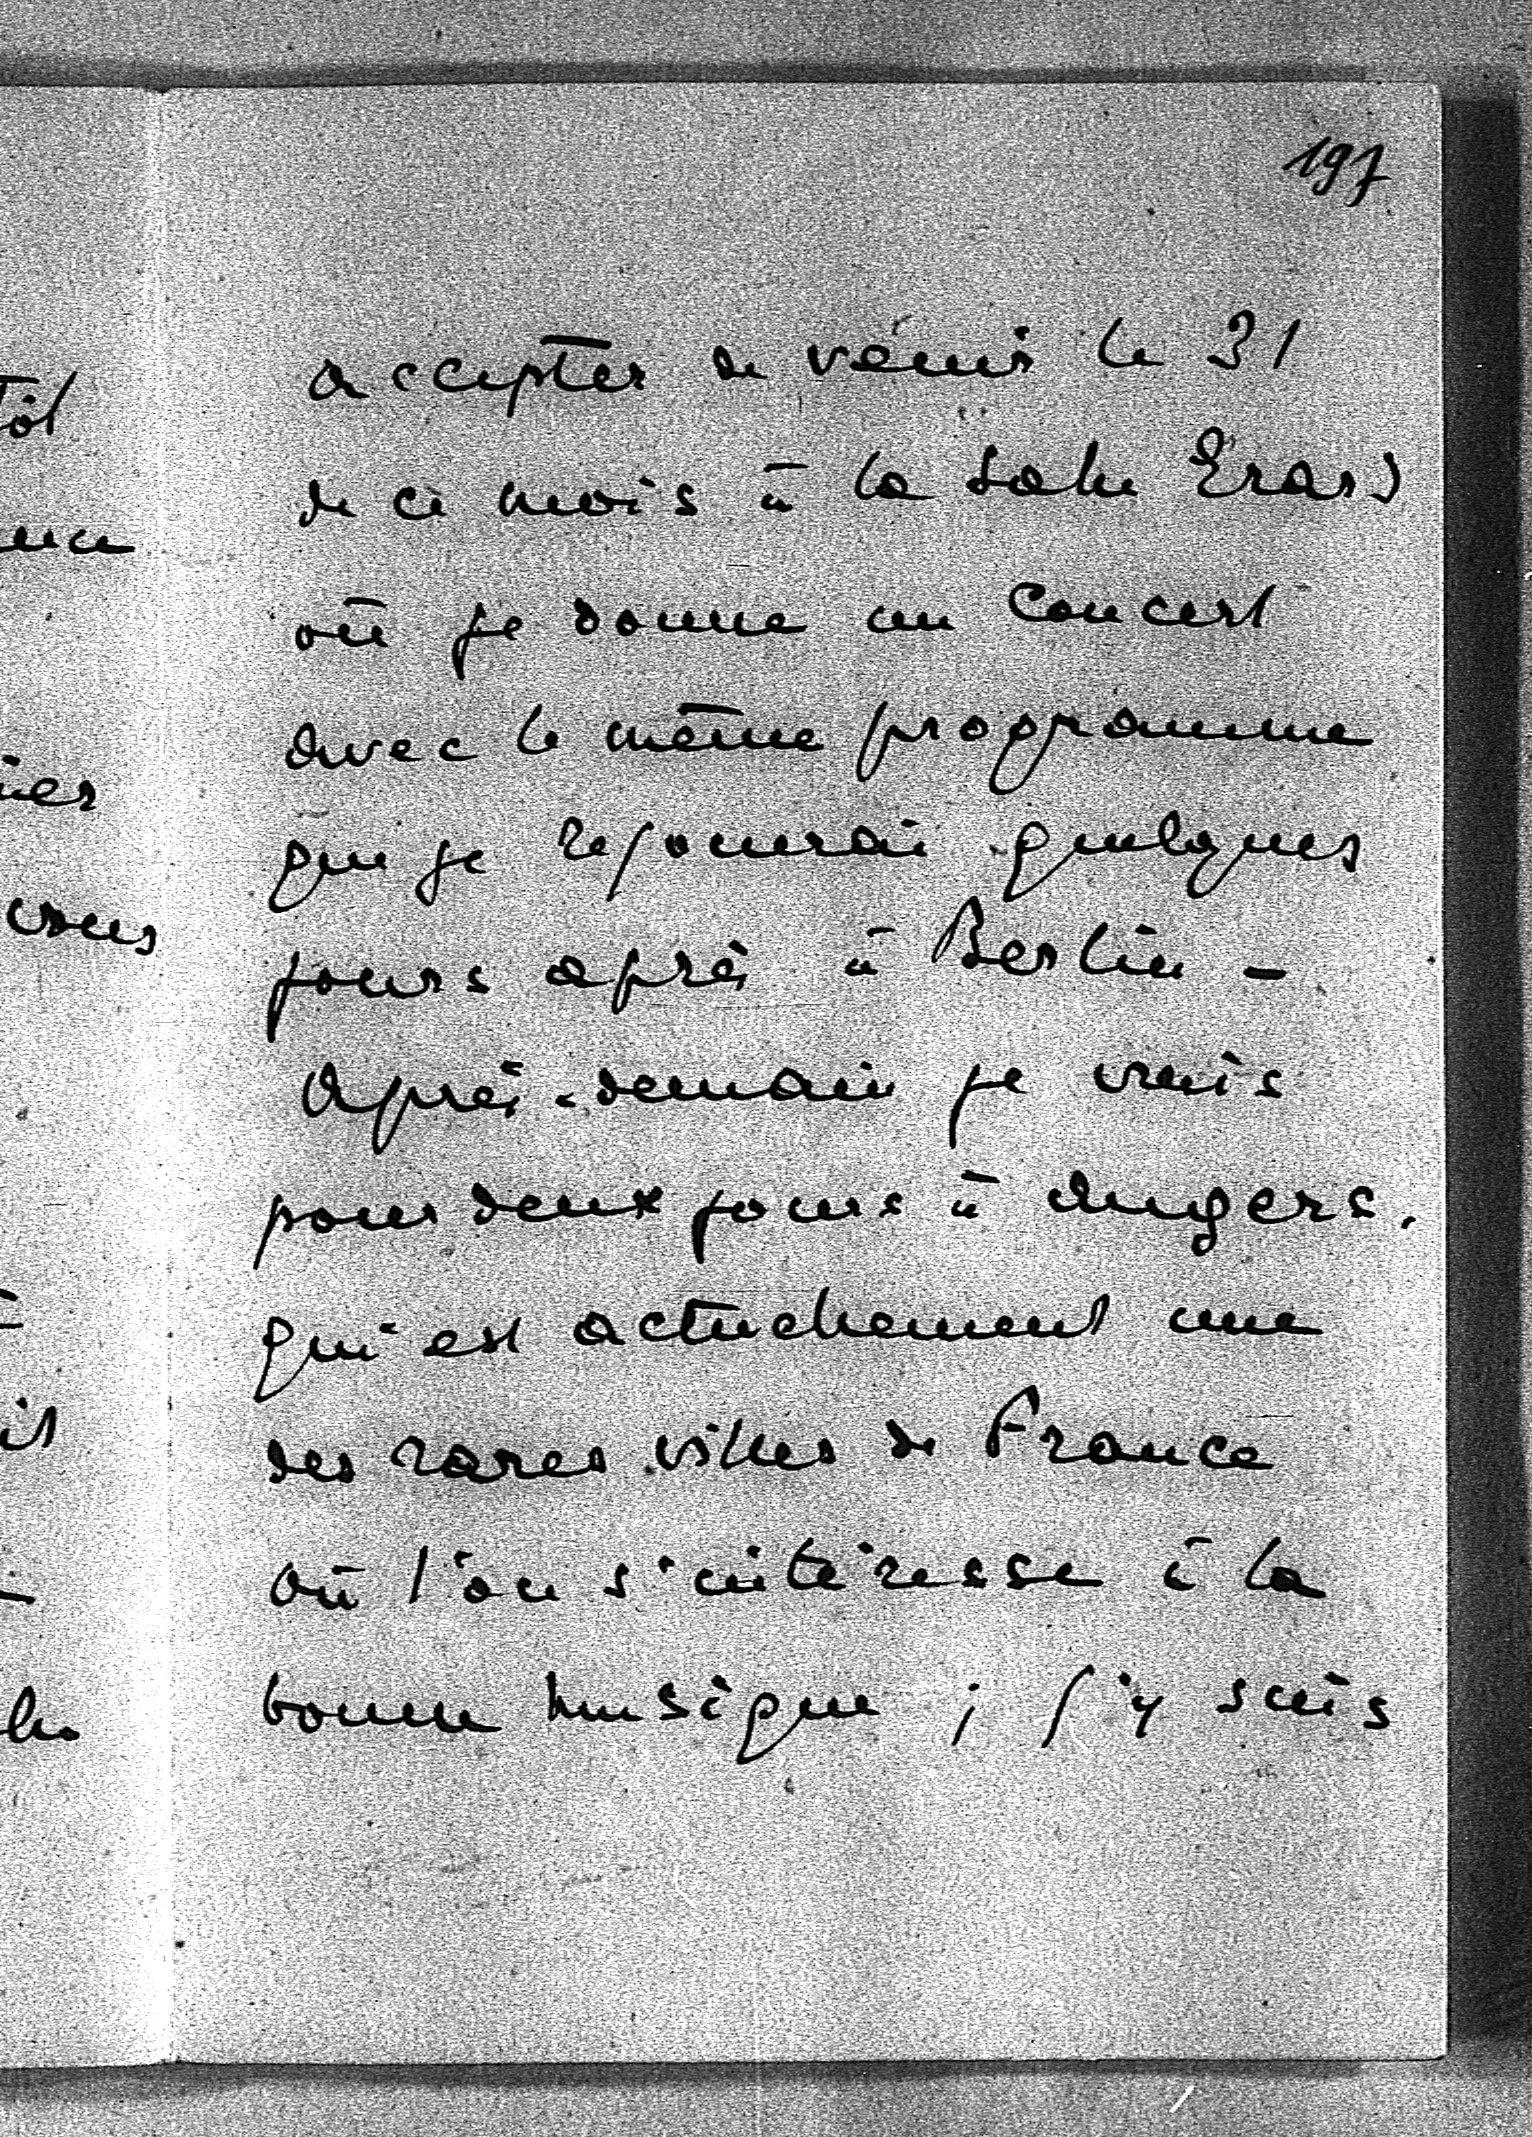 197
accepter de venir le 31
de ce mois à la Salle Erard
où je donne un Concert
avec le même programme
que je rejouerai quelques
jours après à Berlin -
Après-demain je vais
pour deux jours à Angers.
qui est actuellement une
des rares villes de France
où l'on s'intéresse à la
bonne musique ; j'y suis